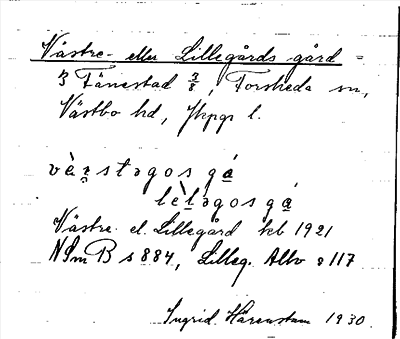 Västre- eller Lillegårds gård =
3 Tånestad 3/8, Forsheda sn,
Västbo hd, Jkpgs l.
vä̀r̥stəgos gá̱
lèl̥əgosgá̱
Västre el. Lillegård kb 1921
NSmB s 884, Lilleg. Allv s 117
Ingrid Härenstam 1930.